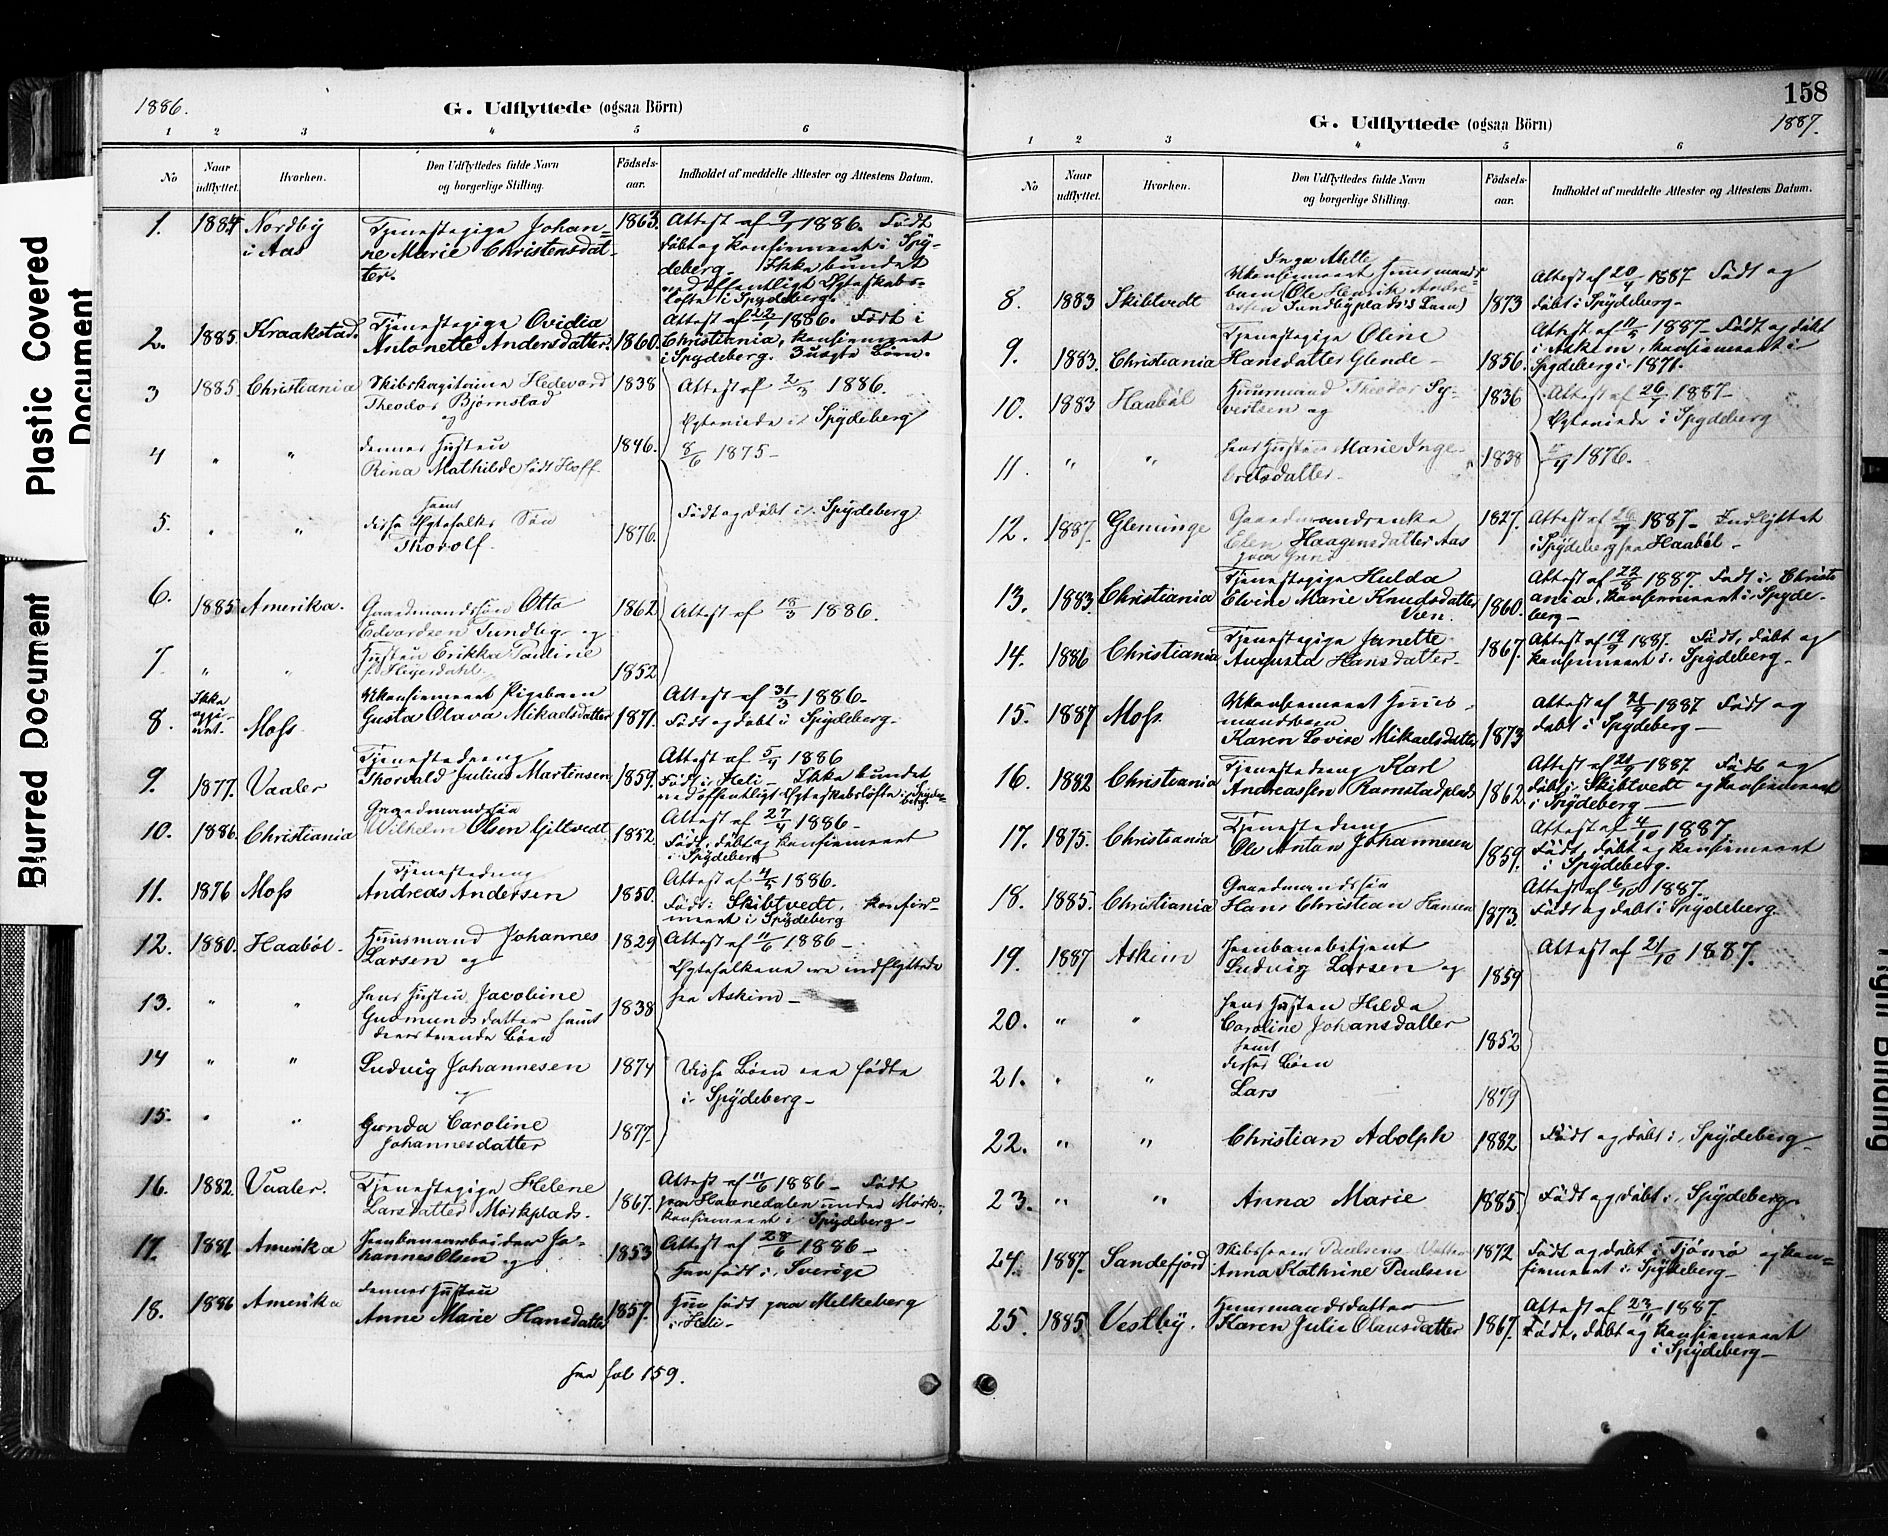 Plastic Covered
Document
Blurred Document
1886.
G. Udflyttede (ogsaa Börn)
1 2 3 4 5 6
No
Naar udflyttet.
Hvorhen.
Den Udflyttedes fulde Navn
og borgerlige Stilling.
Födsels-
aar.
Indholdet af meddelte Attester og Attestens Datum.
1. 1884 Nordby i Aas Tjenestepige Johan-
ne Marie Christensdat-
ter. 1863 Attest af 9/1 1886. Født
døbt og konfirmeret i Spy-
deberg. Ikke bundet
ved offentligt Ægteskabs-
løfte i Spydeberg.
2. 1885. Kraakstad. Tjenestepige Ovidia
Antonette Andersdatter. 1860. Attest af 22/1 1886. Født i
Christiania, konfirmeret
i Spydeberg. 3 uægte Børn.
3 1885. Christiania Skibskaptaine Hedevard
Theodor Bjørnstad
og 1838 Attest af 2/3 1886.
Ægteviede i Spydeberg
4 " " dennes Hustru
Rina Mathilde født Hoff. 1846. 8/6 1875-
5. " " samt
disse Ægtefolks Søn
Thorolf. 1876. Født og døbt i Spydeberg
6. 1885 Amerika. Gaardmandssøn Otto
Edvardsen Tundlig og 1862 Attest af 18/3 1886.
7. " " Hustru Erikka Pauline
f. Heyerdahl. 1852
8. Ikke
opgi-
vet. Moss Ukonfirmeret Pigebarn
Gusta Olava Mikaelsdatter 1871. Attest af 31/3 1886-
Født og døbt i Spydeberg-
9. 1877. Vaaler Tjenestedreng
Thorvald Julius Martinsen 1859. Attest af 5/4 1886
Født i Heli- Ikke bundet
ved offentligt Ægteskabsløfte i Spyde-
berg.
10. 1886. Christiania Gaardmandssøn
Wilhelm Olsen Gjltvedt 1852. Attest af 27/4 1886-
Født, døbt og konfirmeret
i Spydeberg
11. 1876 Moss Tjenestedreng
Andreas Andersen 1850. Attest af 4/5 1886.
Født i Skibtvedt, konfir-
meret i Spydeberg
12. 1880. Haabøl- Huusmand Johannes
Larsen og 1829 Attest af 11/6 1886-
Ægtefolkene ere indflyttede
13. " " hans Hustru Jacobine
Gudmundsdatter samt
deres tvende Børn 1838 fra Askim-
14 " " Ludvig Johannesen
og 1874 Disse Børn ere fødte
i Spydeberg-
15. " " Gunda Caroline
Johannesdatter 1877.
16. 1882. Vaaler. Tjenestepige Helene
Larsdatter Mørkplads. 1867. Attest af 11/6 1886- Født
paa Haanedalen under Mørk-
konfirmeret i Spydeberg-
17. 1881 Amerika Jernbanearbeider Jo-
hannes Olsen og 1853 Attest af 28/6 1886-
Han født i Sverige
18. 1886 Amerika dennes Hustru
Anne Marie Hansdatter 1857. Hun født paa Melkeberg
i Heli-
see fol 159.
158
1887.
G. Udflyttede (ogsaa Börn)
1 2 3 4 5 6
No
Naar
udflyttet.
Hvorhen.
Den Udflyttedes fulde Navn
og borgerlige Stilling.
Födsels-
aar.
Indholdet af meddelte Attester og Attestens Datum.
8. 1883 Skibtvedt Inga Mille
Ukonfirmeret Huusmands-
barn (Ole Henrik Andre-
asen Sundbyplads's Barn) 1873 Attest af 20/4 1887 Født og
døbt i Spydeberg-
9. 1883. Christiania Tjenestepige Oline
Hansdatter Glende- 1856. Attest af 11/5 1887- Født og døbt
i Askim, konfirmeret i
Spydeberg i 1871.
10. 1883 Haabøl Huusmand Theodor Sy-
vertsen og 1836 Attest af 26/7 1887-
Ægteviede i Spydeberg
11. " " hans Hustru Marie Inge-
bretsdatter- 1838 1876.
12. 1887. Gleminge Gaardmandsenke
Elen Haagensdatter Aas 1827. Attest af 26/7 1887- Indflyttet
i Spydeberg fra Haabøl-
13. 1883 Christiania Tjenestepige Hulda
Elvine Marie Knudsdatter
Veen. 1860. Attest af 22/8 1887. Født i Christi
ania, konfirmeret i Spyde-
berg-
14. 1886 Christiania Tjenestepige Janette
Augusta Hansdatter- 1867. Attest af 19/9 1887. Født, døbt og
konfirmeret i Spydeberg-
15. 1887 Moss. Ukonfirmeret Huus-
mandsbarn
Karen Lovise Mikaelsdatter 1873 Attest af 21/9 1887 Født og
døbt i Spydeberg-
16. 1882 Christiania Tjenestedreng Karl
Andreassen Ramstadplads 1862 Attest af 21/9 1887 Født og
døbt i Skibtvedt og konfirmeret
i Spydeberg-
17. 1875. Christiania Tjenestedreng
Ole Anton Johannesen 1859. Attest af 4/10 1887
Født, døbt og konfirmeret
i Spydeberg.
18. 1885. Christiania Gaardmandssøn
Hans Christian Hansen 1873. Attest af 6/10 1887.
Født og døbt i Spydeberg.
19. 1887 Askim Jernbanebetjent
Ludvig Larsen og 1859 Attest af 21/10 1887.
20. " " hans Hustru Hilda
Caroline Johansdatter
samt 1852
21. " " disses Børn
Lars 1879
22. " " Christian Adolph 1882 Født og døbt i Spydeberg-
23. " " Anna Marie 1885 Født og døbt i Spydeberg.
24. 1887. Sandefjord Skibsfører Paulsens Datter
Anna Kathrine Paulsen 1872 Født og døbt i Tjømø og kon-
firmeret i Spydeberg-
25. 1885. Vestby. Huusmandsdatter
Karen Julie Olausdatter 1867. Attest af 23/11 1887
Født, døbt og konfirmeret
i Spydeberg-
Tight Binding